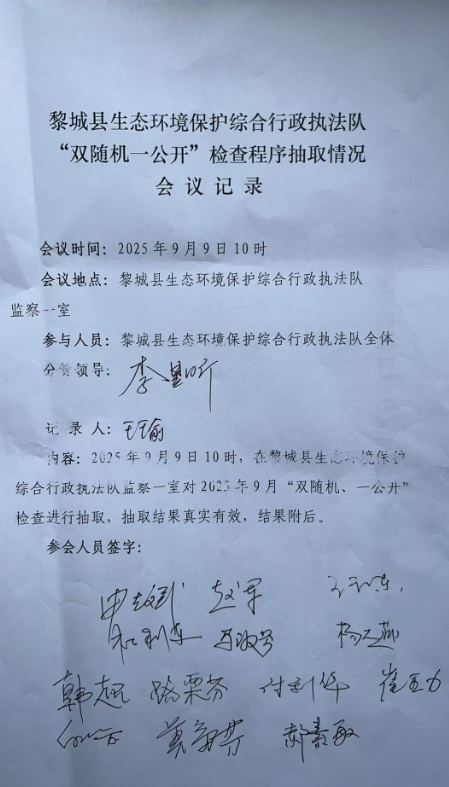 黎城县生态环境保护综合行政执法队
“双随机一公开”检查程序抽取情况
会议记录
会议时间：2025年9月9日10时
会议地点：黎城县生态环境保护综合行政执法队
监察一室
参与人员：黎城县生态环境保护综合行政执法队全体
分管领导：李
记录人：王瑜
内容：2025年9月9日10时，在黎城县生态环境保护
综合行政执法队监察一室对2025年9月“双随机、一公开”
检查进行抽取，抽取结果真实有效，结果附后。
参会人员签字：
赵军
和利东
韩超 付利华 崔
郝素敏